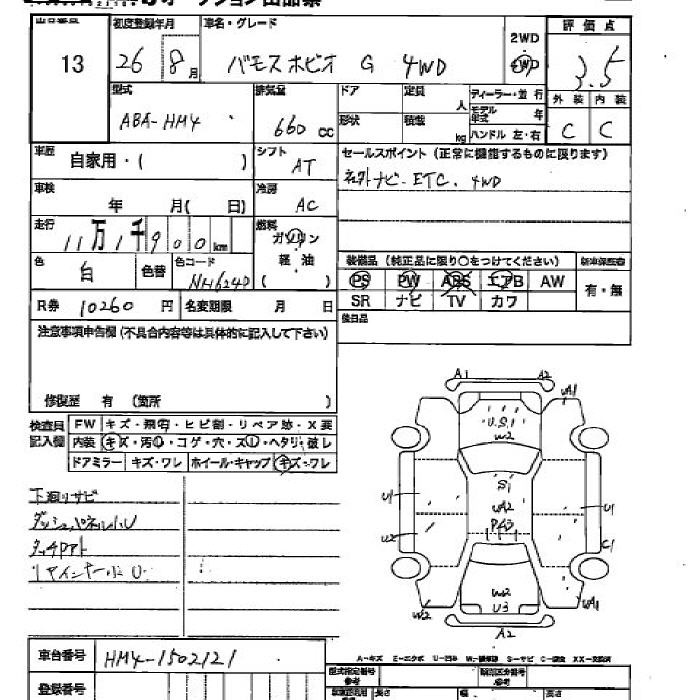 13
初度登録年月
26 8月
車名・グレード
バモスホビオ G 4WD
2WD
4WD
評価点
3.5
外装 内装
C C
型式
ABA-HM4
排気量
660 cc
ドア 定員 人
形状 積載 kg
ディーラー・並行
モデル年式 年
ハンドル 左・右
車歴
自家用・( )
シフト
AT
セールスポイント(正常に機能するものに限ります)
ナビ・ETC・4WD
車検
年 月( 日)
冷房
AC
走行
11万1千900km
燃料
ガソリン
軽油
( )
色
白
色替
色コード
NH624P
装備品(純正品に限り○をつけてください)
PS PW ABS エアB AW
SR ナビ TV カワ
新車保証書
有・無
R券 10260 円
名変期限 月 日
後日品
注意事項申告欄(不具合内容等は具体的に記入して下さい)
修復歴 有(箇所 )
検査員記入欄
FW キズ・飛石・ヒビ割・リペア跡・X要
内装 キズ・汚れ・コゲ・穴・スレ・ヘタリ・破レ
ドアミラー キズ・ワレ ホイール・キャップ キズ・ワレ
下廻りサビ
ダッシュパネル小U
タッチアト
リアインナー小U
A1 A2
WA1
U.S.1
W2
S1
WA2
U1 U1
U2 C1
W2
U3
W2 WA1
A2
車台番号 HM4-1502121
登録番号
A-キズ E-エクボ U-凹み W-補修跡 S-サビ C-腐食 XX-交換済
型式指定番号 参考
類別区分番号 参考
長さ 幅 高さ